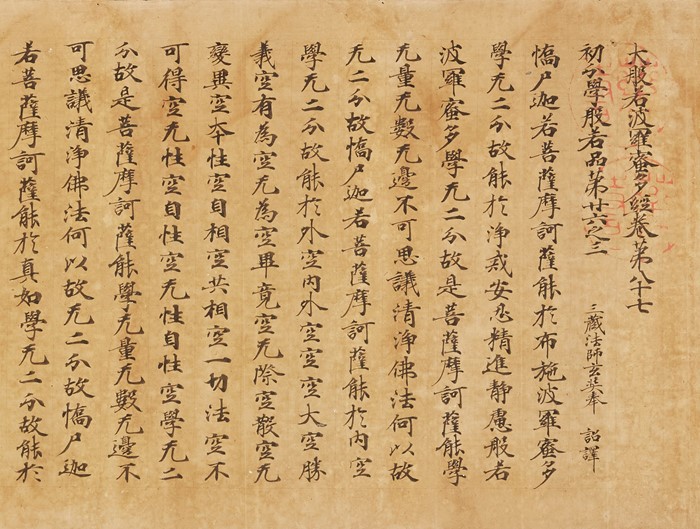 大般若波羅蜜多經卷第八十七
初分學般若品第廿六之三 三藏法師玄奘奉 詔譯
憍尸迦若菩薩摩訶薩能於布施波羅蜜多
學无二分故能於淨戒安忍精進靜慮般若
波羅蜜多學无二分故是菩薩摩訶薩能學
无量无數无邊不可思議清淨佛法何以故
无二分故憍尸迦若菩薩摩訶薩能於內空
學无二分故能於外空內外空空空大空勝
義空有為空无為空畢竟空无際空散空无
變異空本性空自相空共相空一切法空不
可得空无性空自性空无性自性空學无二
分故是菩薩摩訶薩能學无量无數无邊不
可思議清淨佛法何以故无二分故憍尸迦
若菩薩摩訶薩能於真如學无二分故能於